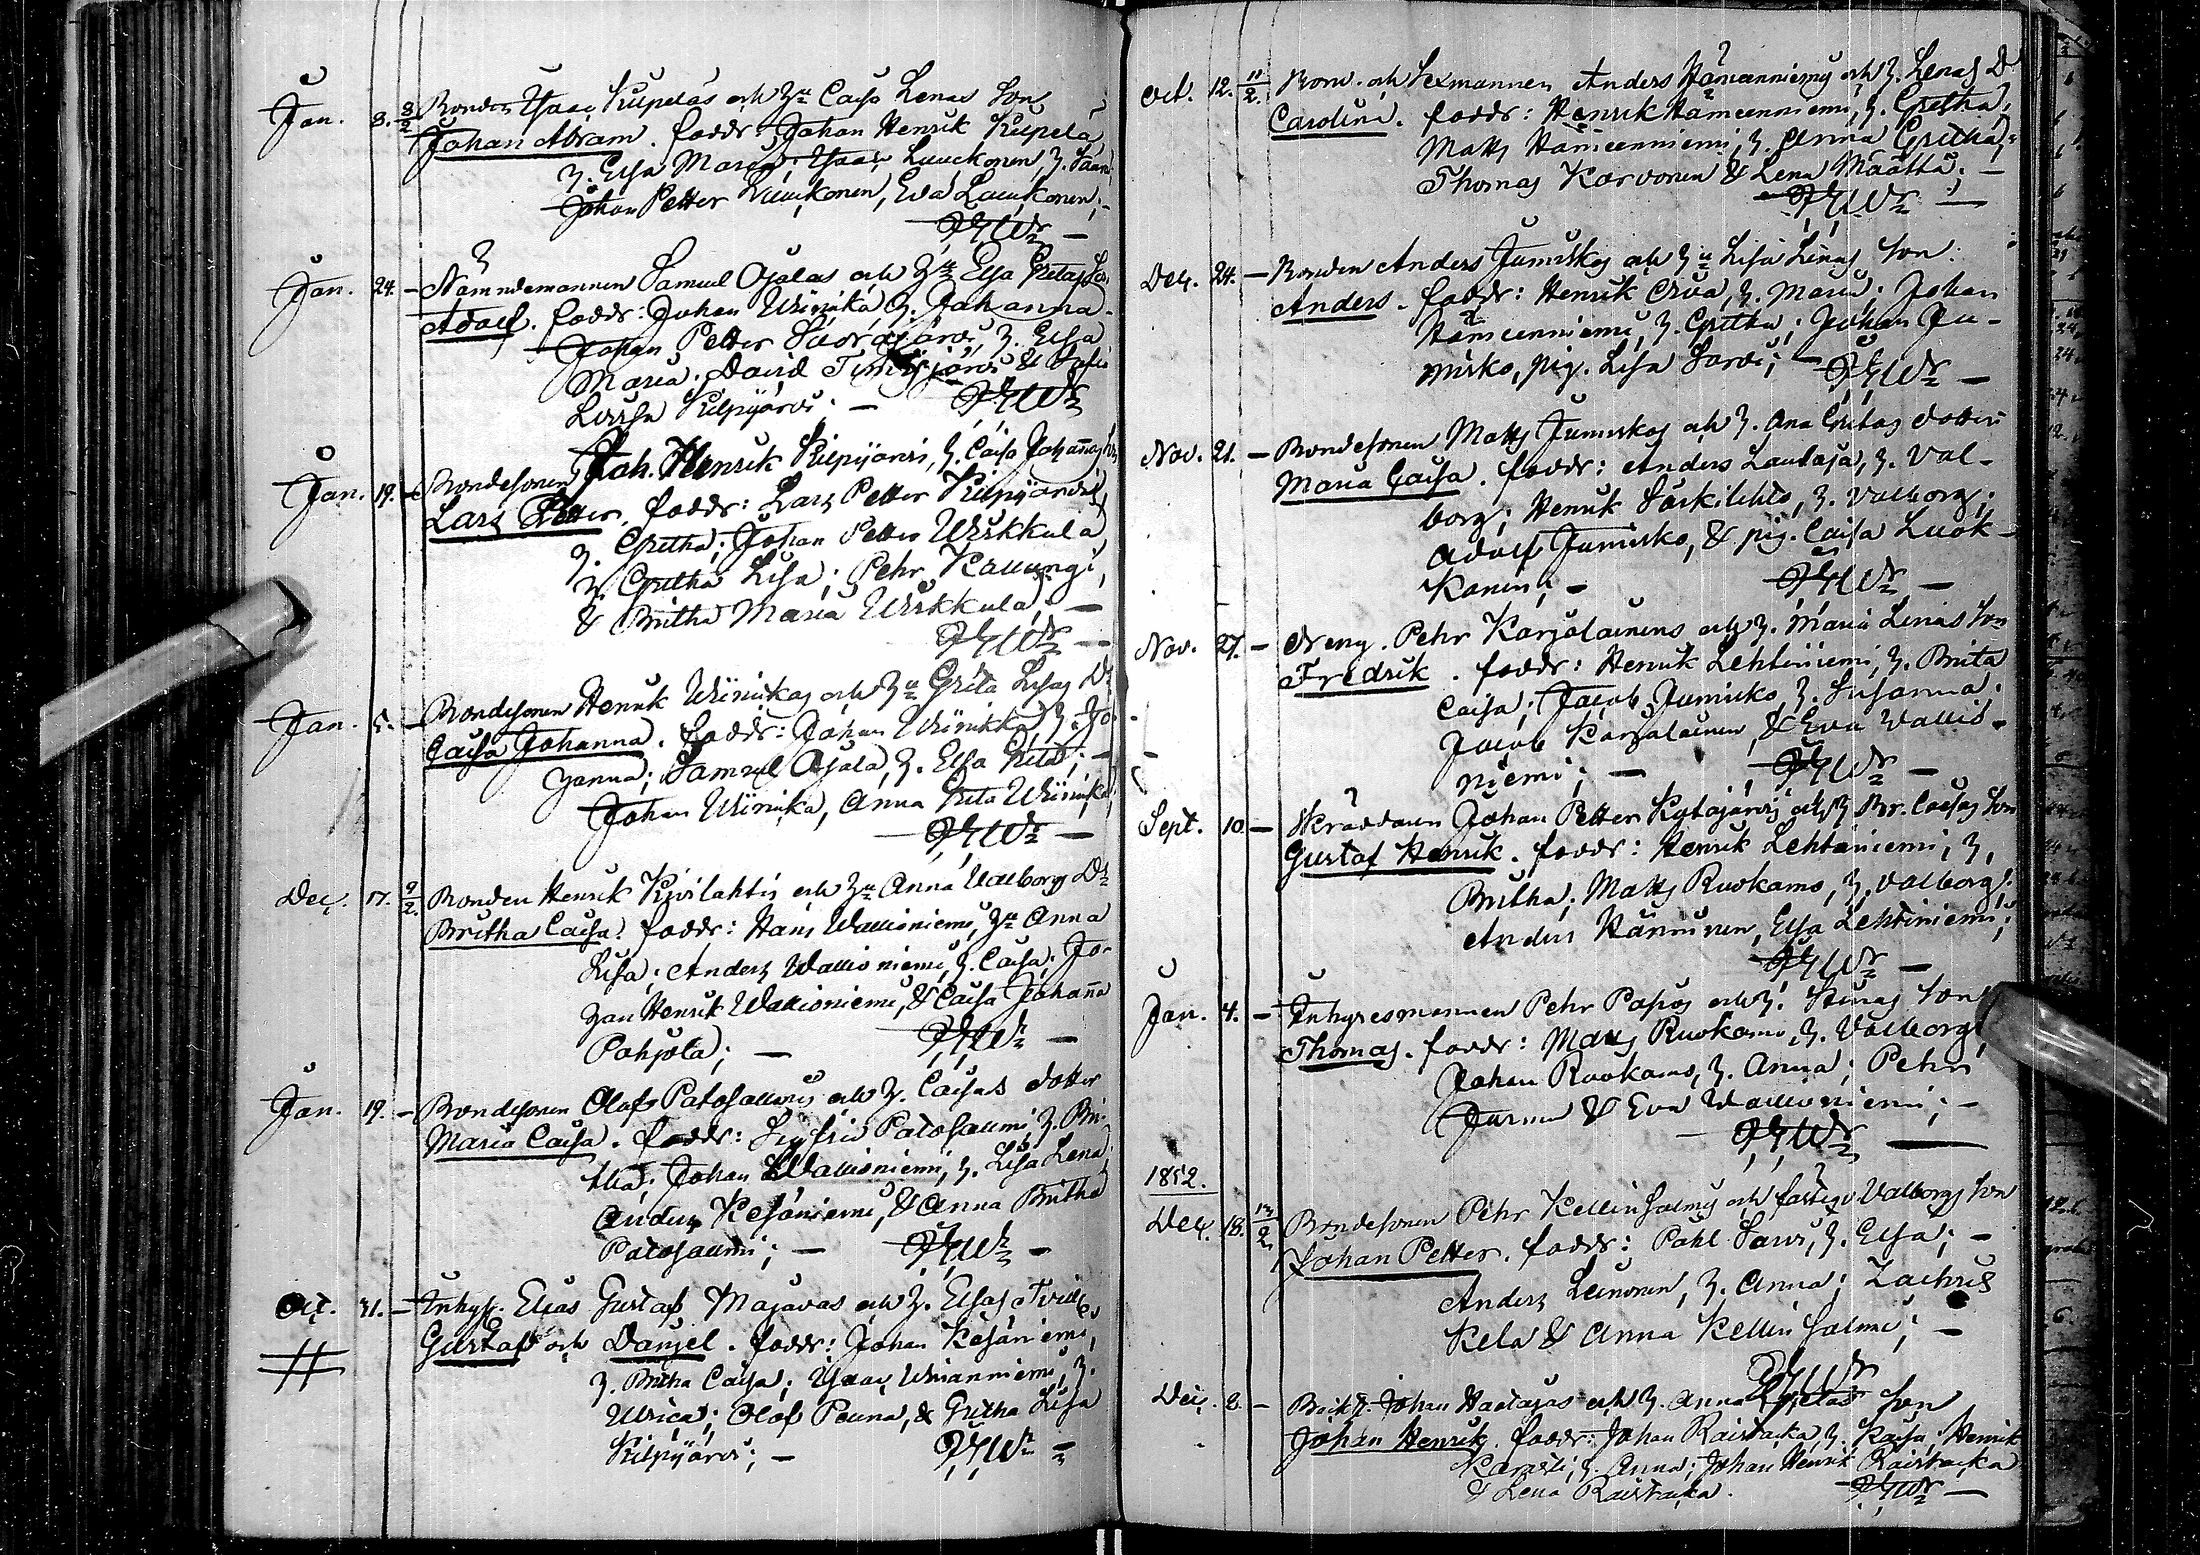 Jan. 8. 8/2 Bonden Isaac Kilpeläs och H:u Caisa Lenas Son
Johan Abram. faddr: Johan Henrik Kilpelä,
h. Elsa Maria; Isaac Luuckonen, h.
Johan Petter Luuckonen, Eva Luuckonen;
Jan. 24. – Nämndemannen Samuel Ojalas och H:u Elsa Gretas Son
Adolf. faddr: Johan Wiinikka h. Johanna.
Johan Petter Suorajärvi, h. Elsa
Maria; David &
Lovisa Kilpijärvi; –
Jan. 19. – Bondesonen Joh. Henrik Kilpijärvis, h. Caisa Johannas Son
Lars Petter. faddr: Lars Petter Kilpijärvi,
h. Gretha; Johan Petter Wirkkula,
h. Gretha Lisa; Pehr Kallungi,
& Britha Maria Wirkkula; –
Jan. 5. – Bondesonen Henrik Wiinikas och H:u Greta Lisas Dr
Caisa Johanna. faddr: Johan Wiinikka, h. Jo-
hanna; Samuel Ojala, h. Elsa Greta; –
Johan Wiinika, Anna Greta Wiinika;
Dec. 17. 9/2. Bonden Henrik Kivilahtis och H:u Anna Valborgs Dr
Britha Caisa. faddr: Hans Wallioniemi, H:u Anna
Lisa; Anders Wallioniemi, h. Caisa; Jo-
han Henrik Wallioniemi, & Caisa Johanna
Pohjola; –
Jan. 19. – Bondesonen Olof Patosalmis och h. Caisas dotter
Maria Caisa. faddr: Sigfrid Patosalmi, h. Bri-
tha; Johan Wallioniemi, h. Lisa Lena;
Anders Kesäniemi, & Anna Britha
Patosalmi; –
Oct. 31. – Inhys. Elias Gustaf Majavas och h. Elsas Tvill.
Gustaf och Daniel. faddr: Johan Kesäniemi,
h. Britha Caisa; Isaac, h.
Ulrica; Olof Peuna, & Gretha Lisa
Kilpijärvi; –
Oct. 12. 11/2. Bond. och Sexmannen Anders Hämeenniemis och h. Lenas D
Carolina. faddr: Henrik Hämeenniemi, h. Gretha;
Matts Hämeenniemi, h. Anna Gretha;
Thomas Karvonen & Lena Määttä; –
Dec. 24. – Bonden Anders Jumiskos och H:u Lisa Lenas Son.
Anders. faddr: Henrik Orva, h. Maria; Johan
Hämeenniemi, h. Gretha; Johan Ju-
misko, pig. Lisa Sarvi; –
Nov. 21. – Bondesonen Matts Jumiskos och h. Ana Gretas dotter
Maria Caisa. faddr: Anders Lautaja, h. Val-
borg; Henrik Särkilehto, h. Valborg;
Adolf Jumisko, & pig. Caisa Luok-
kanen; –
Nov. 27. – Dreng. Pehr Karjalainens och h. Maria Lenas Son
Fredrik. faddr: Henrik Lehtiniemi, h. Brita
Caisa; Jacob Jumisko, h. Susanna.
Jacob Karjalainen, & Eva Wallio-
niemi; –
Sept. 10. – Skräddaren Johan Petter Kytöjärvis och h Br. Caisas Son
Gustaf Henrik. faddr: Henrik Lehtiniemi, h.
Britha; Matts Ruokamo, h. Valborg;
Anders Hänninen, Elsa Lehtiniemi;
Jan. 4. – Inhyresmannen Pehr Papos och h. Stinas Son
Thomas. faddr: Matts Ruokamo, h. Valborg;
Johan Ruokamo, h. Anna; Pehr
Jurmu & Eva Wallioniemi; –
1852.
Dec. 18. 13/2 Bondesonen Pehr Kellinsalmis och Valborgs Son
Johan Petter. faddr: Påhl Sarvi, h. Elsa; –
Anders Leinonen, h. Anna; Zachris
Kela & Anna Kellinsalmi; –
Dec. 2. – Johan Hastajas och h. Anna Gretas Son
Johan Henrik. faddr: Johan Raistakka, h. Kaisa; Henrik
h. Anna; Johan Henrik Raistakka
& Lena Raistakka.